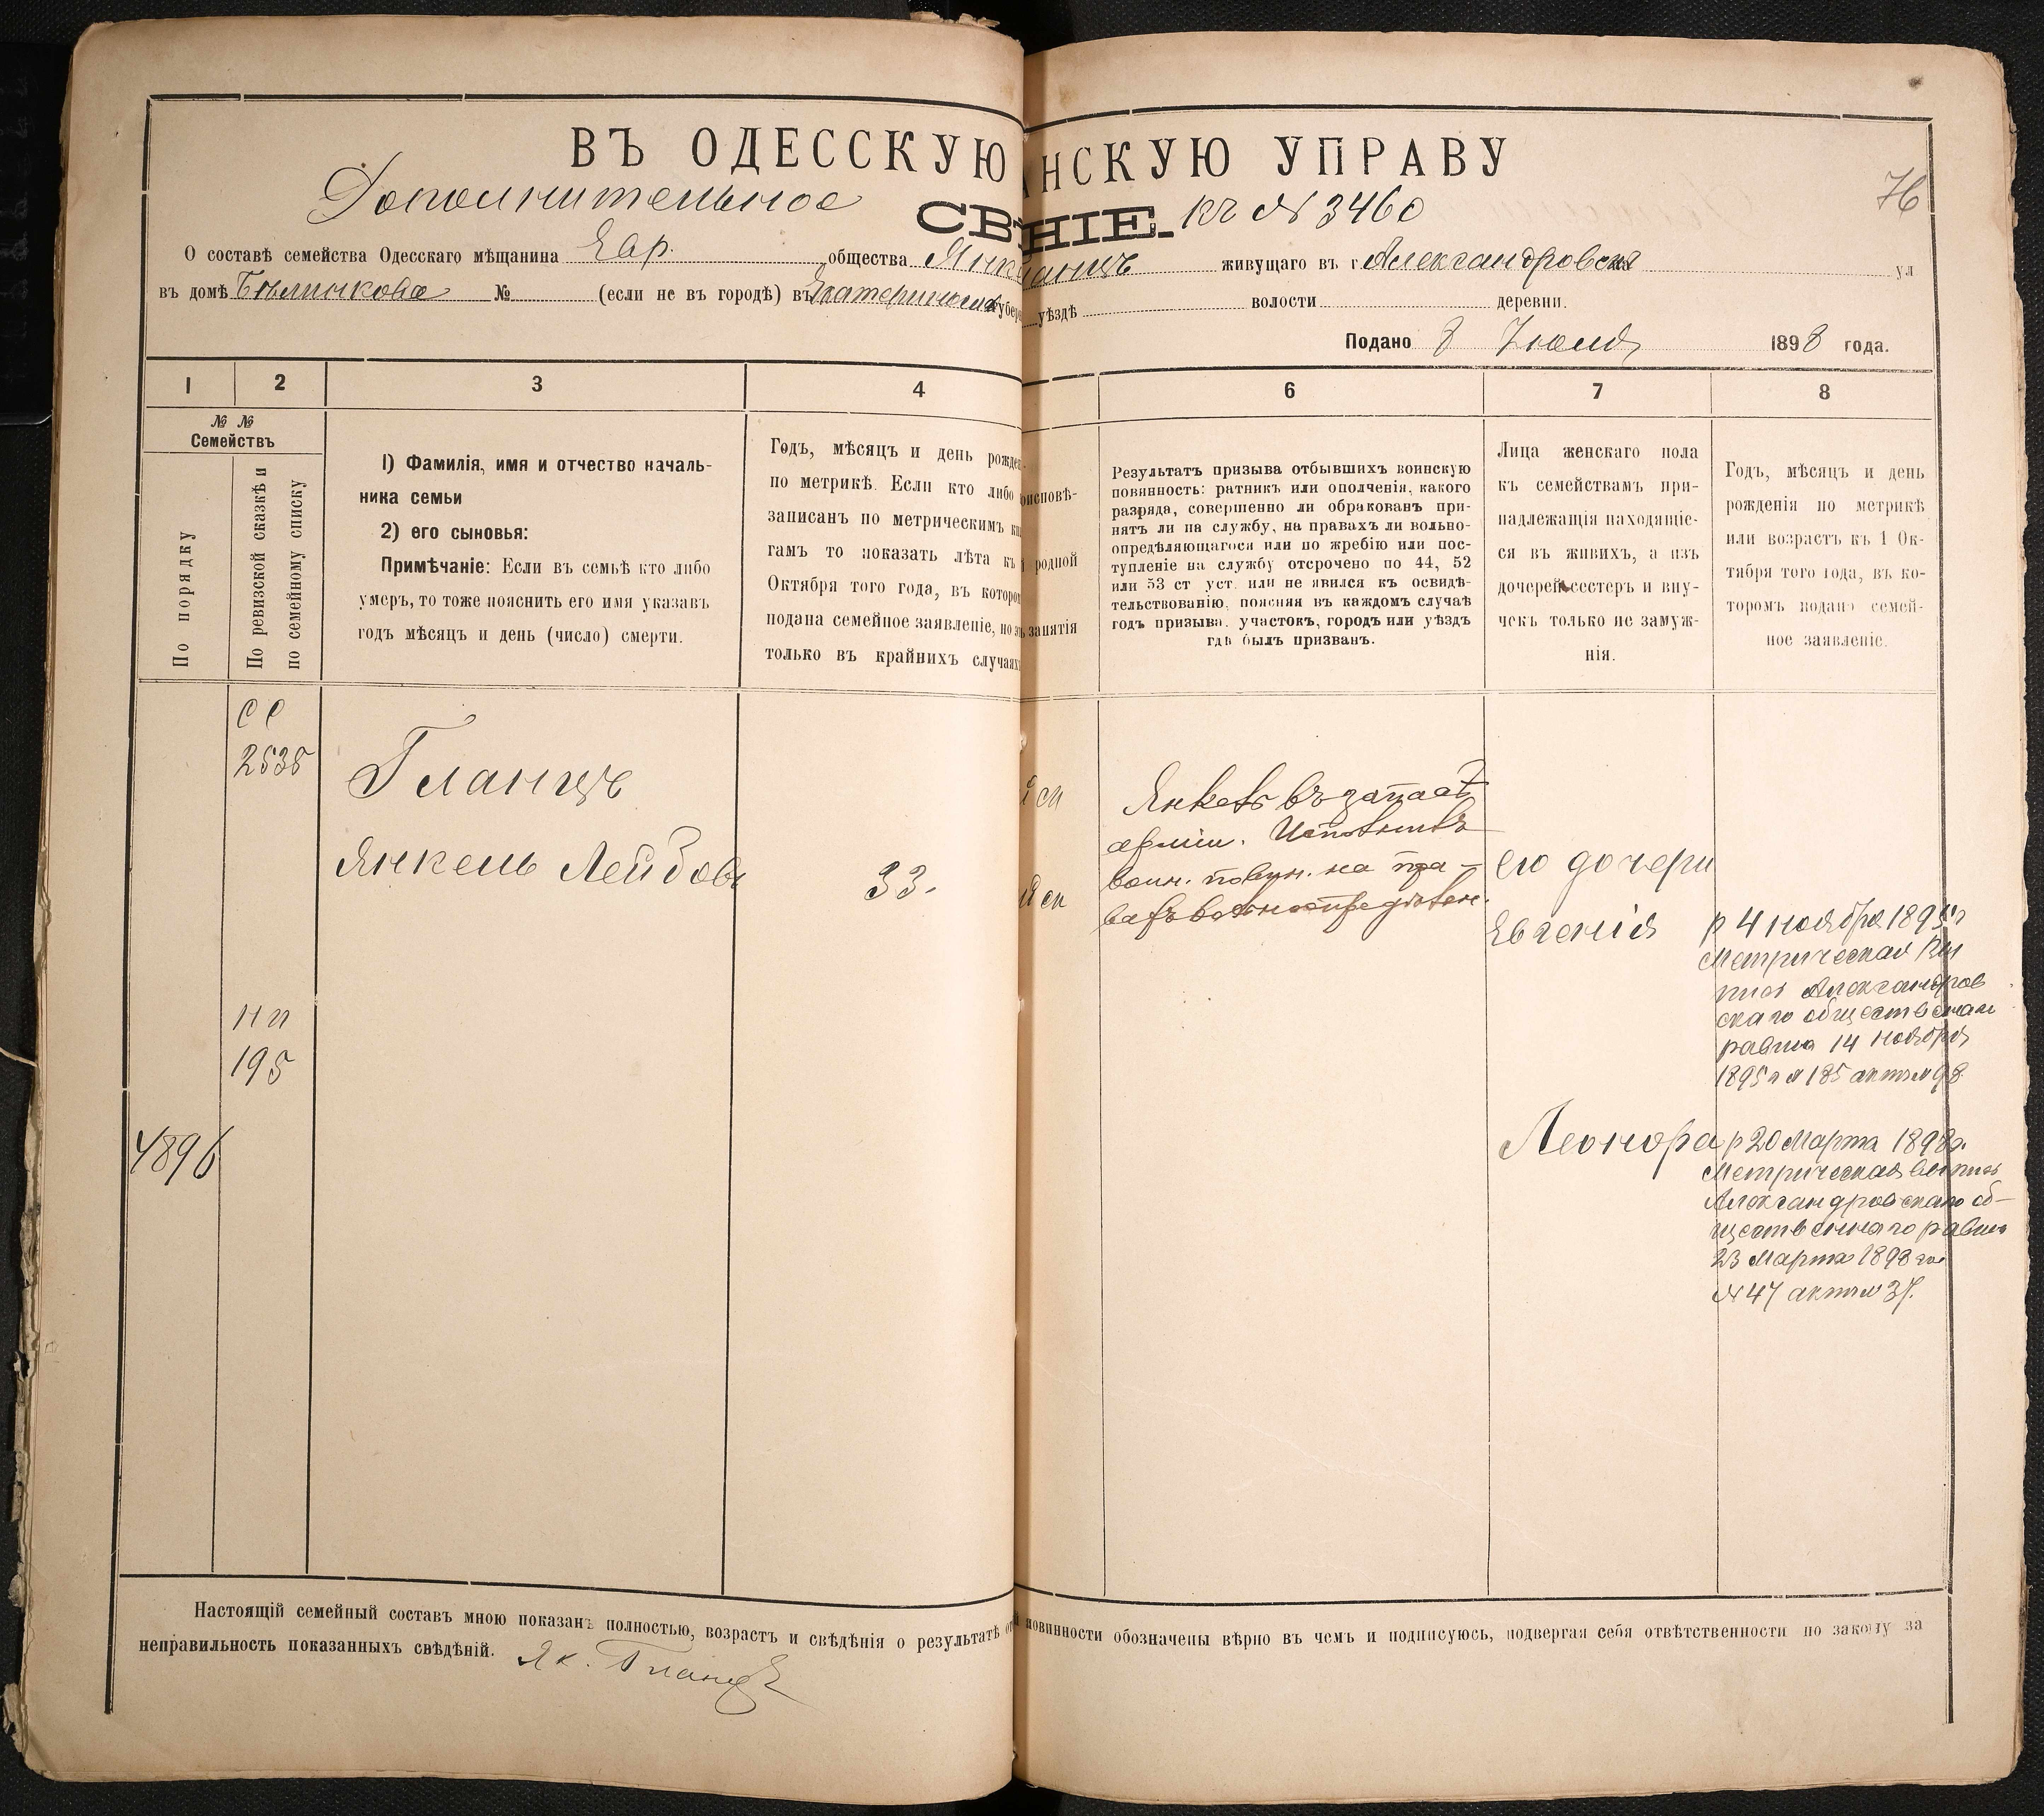 ВЪ ОДЕССКУЮ НСКУЮ УПРАВУ
76
Дополнительное СВ НІЕ. къ № 3460
О составѣ семейства Одесскаго мѣщанина Евр. общества Янк Гланцъ живущаго въ г Александровскѣ ул
въ домѣ №        (если не въ городѣ) въ Екатеринослав губер уѣздѣ волости деревни.
Подано 8 Іюля 1898 года.
1 2 3 4 6 7 8
№ №
Семействъ
По порядку
По ревизской сказкѣ и
по семейному списку
1) Фамилія, имя и отчество началь-
ника семьи
2) его сыновья:
Примѣчаніе: Если въ семьѣ кто либо
умеръ, то тоже пояснить его имя указавъ
годъ мѣсяцъ и день (число) смерти.
Годъ, мѣсяцъ и день рожден
по метрикѣ. Если кто либо
записанъ по метрическимъ кни
гамъ то показать лѣта къ
Октября того года, въ которо
подана семейное заявленіе, но э
только въ крайнихъ случаях
оисповѣ-
родной
занятія
Результатъ призыва отбывшихъ воинскую
повинность: ратникъ или ополченія, какого
разряда, совершенно ли обракованъ при-
нятъ ли на службу, на правахъ ли вольно-
опредѣляющагося или по жребію или пос-
тупленіе на службу отсрочено по 44, 52
или 53 ст уст. или не явился къ освидѣ-
тельствованію, поясняя въ каждомъ случаѣ
годъ призыва. участокъ, городъ или уѣздъ
гдѣ былъ призванъ.
Лица женскаго пола
къ семействамъ при-
надлежащія находящіе-
ся въ живихъ, а изъ
дочерей сестеръ и вну-
чекъ только не замуж-
нія.
Годъ, мѣсяцъ и день
рожденія по метрикѣ
или возрастъ къ 1 Ок-
тября того года, въ ко-
торомъ подано семей-
ное заявленіе.
СС
2535
Гланцъ
Янкель Лейбовъ
33.
Янкель въ запасѣ
арміи. Исполнилъ
воин. повин. на пра-
вахъ вольноопредѣлен.
его дочери
Евгенія
р 4 ноября 1895 г
Метрическая вы
пись Александров
скаго обществен
равина 14 ноября
1895 г № 185 актъ № 98.
НП
195
4896
Леонора
р 20 Марта 1898г.
Метрическая выпись
Александровскаго об-
щественнаго равина
23 Марта 1898 го
№ 47 актъ № 37.
Настоящій семейный составъ мною показанъ полностью, возрастъ и свѣдѣнія о результатѣ от повинности обозначены вѣрно въ чемъ и подписуюсь, подвергая себя отвѣтственности по закону за
неправильность показанныхъ свѣдѣній. Як. Гланцъ